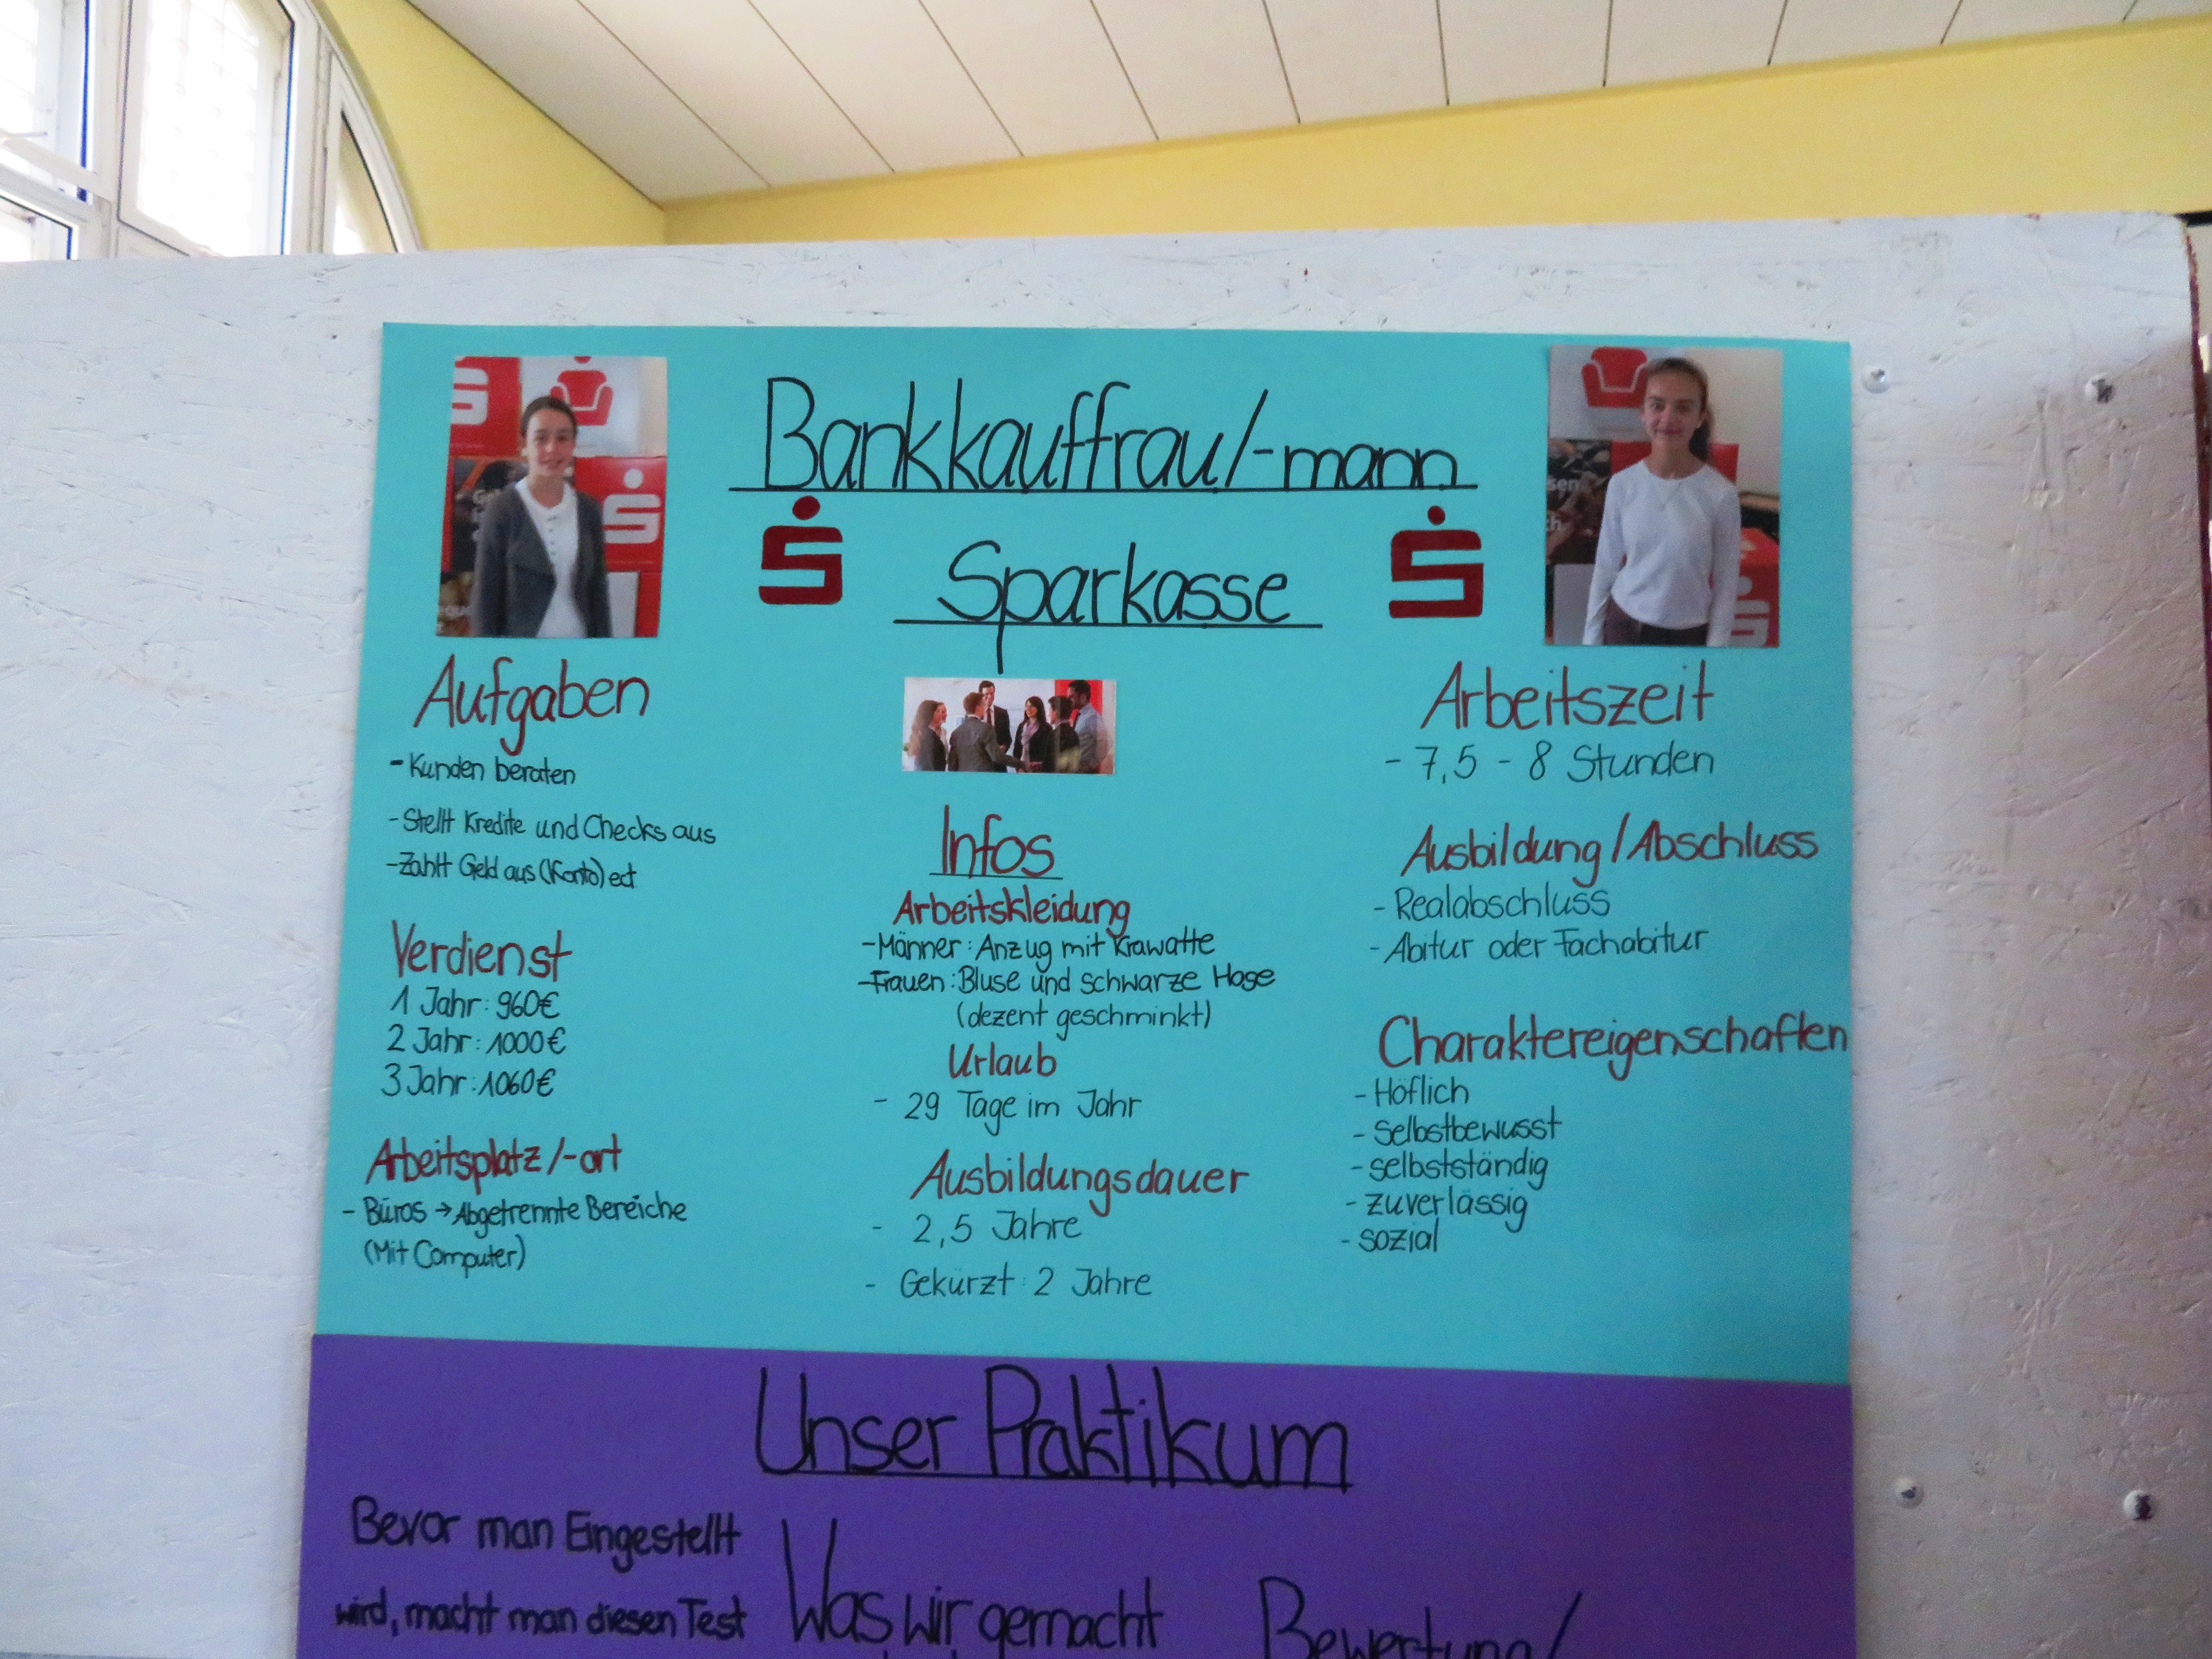 Bankkauffrau/-mann
Sparkasse
Aufgaben
- Kunden beraten
- Stellt Kredite und Checks aus
- Zahlt Geld aus (Konto) ect
Verdienst
1 Jahr: 960€
2 Jahr: 1000€
3 Jahr: 1060€
Arbeitsplatz/-ort
- Büros → Abgetrennte Bereiche
(Mit Computer)
Infos
Arbeitskleidung
- Männer: Anzug mit Krawatte
- Frauen: Bluse und schwarze Hose
(dezent geschminkt)
Urlaub
- 29 Tage im Jahr
Ausbildungsdauer
- 2,5 Jahre
- Gekürzt: 2 Jahre
Arbeitszeit
- 7,5 - 8 Stunden
Ausbildung/Abschluss
- Realabschluss
- Abitur oder Fachabitur
Charaktereigenschaften
- Höflich
- selbstbewusst
- selbstständig
- zuverlässig
- sozial
Unser Praktikum
Bevor man Eingestellt
wird, macht man diesen Test
Was wir gemacht
Bewertung/